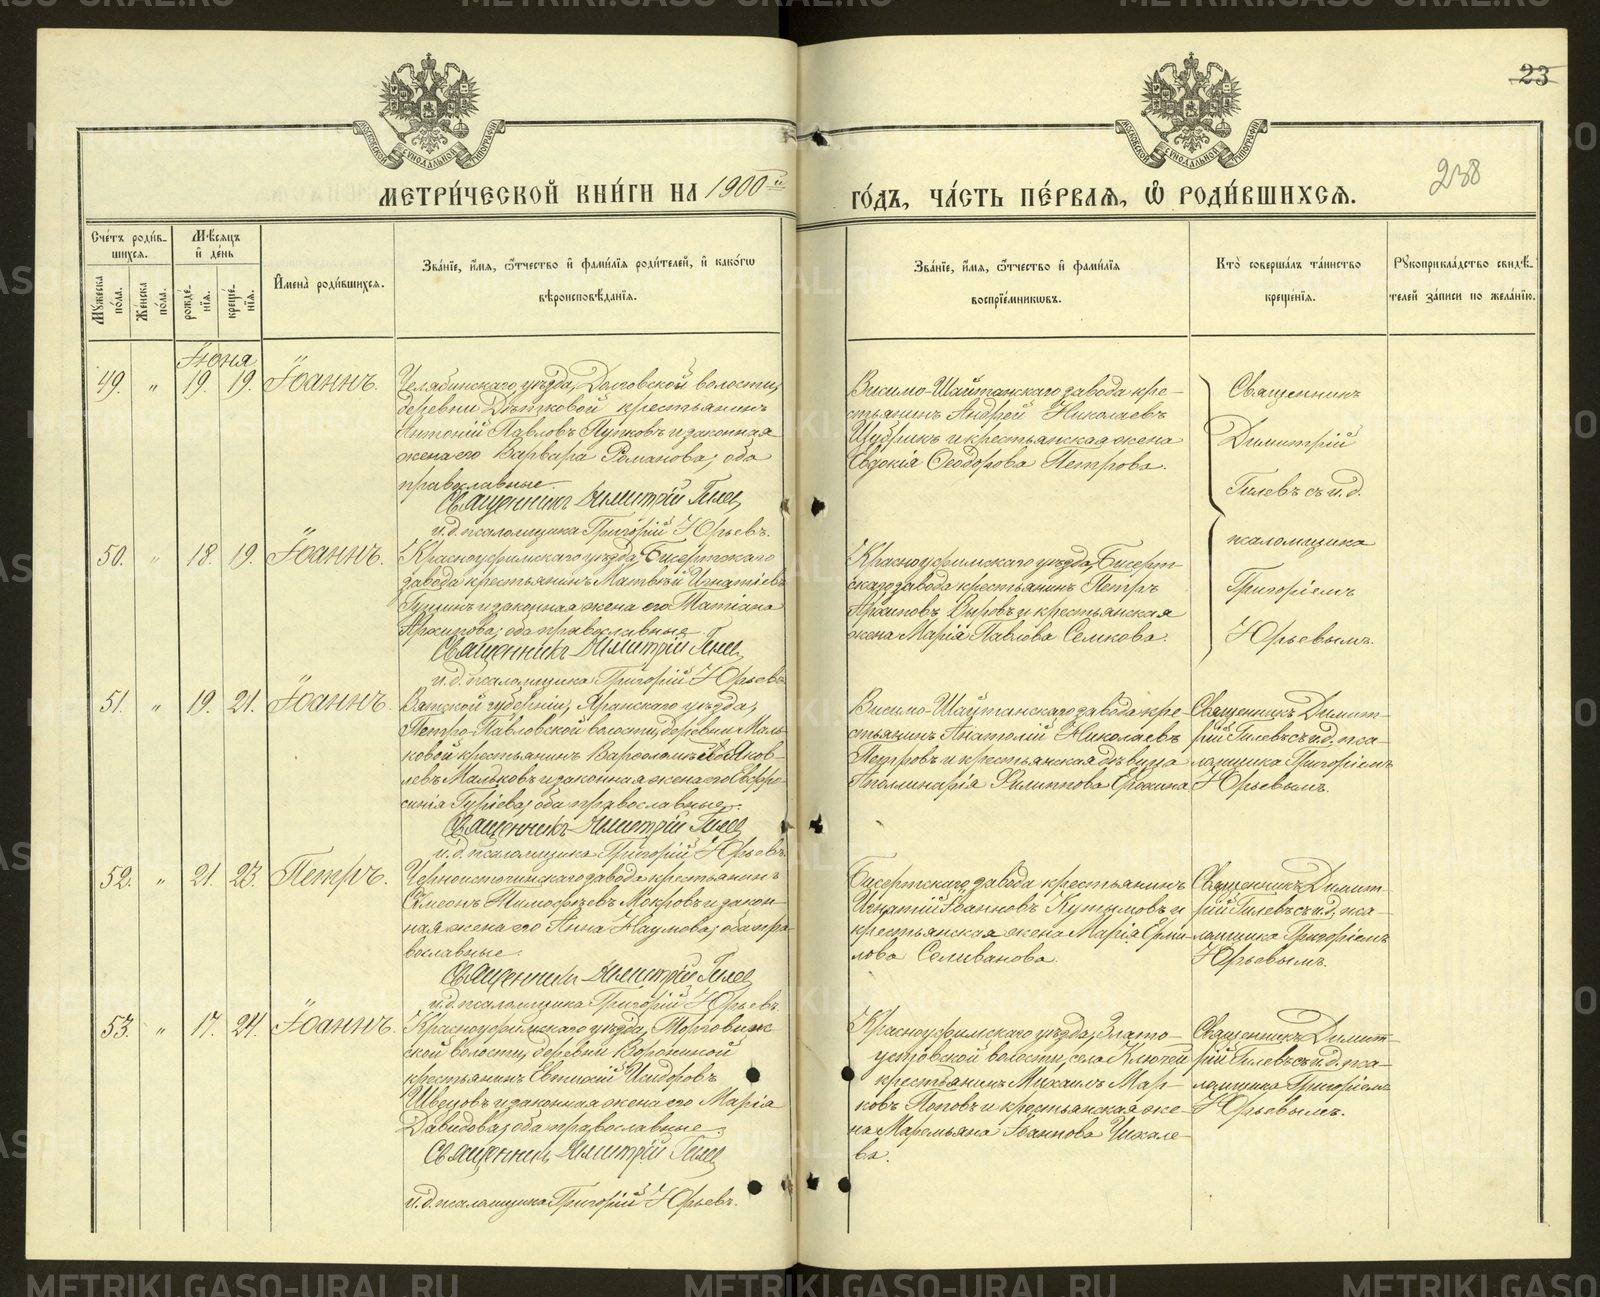 23
238
МЕТРИ́ЧЕСКОЙ КНИ́ГИ НА 1900 й
ГО́ДЪ, ЧА́СТЬ ПЕ́РВАЯ, Ѡ РОДИ́ВШИХСЯ.
Сче́тъ роди́в-
шихся.
Мѣ́сяцъ
и҆ де́нь
Мꙋ́жеска по́ла.
Же́нска по́ла.
рожде́-
нїя.
креще́-
нїя.
И҆мена̀ роди́вшихся.
Зва́нїе, и҆́мя, ѻ҆́тчество и҆ фами́лїя роди́телей, и҆ како́гѡ
вѣроисповѣ́данїя.
Зва́нїе, и҆́мя, ѻ҆́тчество и҆ фами́лїя
воспрїе́мникѡвъ.
Кто̀ соверша́лъ та́инство
креще́нїя.
Рꙋкоприкла́дство свидѣ́-
телей за́писи по жела́нїю.
Іюня
49. „ 19. 19. Іоаннъ.
Челябинскаго уѣзда, Долговской волости,
деревни Дѣтковой крестьянинъ
Антоній Павловъ Пупковъ и законная
жена его Варвара Романова; оба
православные.
Священникъ Димитрій Гилев
и.д. псаломщика Григорій Юрьевъ.
Висимо-Шайтанскаго завода кре-
стьянинъ Андрей Николаевъ
Щубринъ и крестьянская жена
Евдокія Ѳеодорова Петрова.
Священникъ
Димитрій
Гилевъ съ и.д.
псаломщика
Григоріемъ
Юрьевымъ.
50. „ 18. 19. Іоаннъ.
Красноуфимскаго уѣзда, Бисертскаго
завода крестьянинъ Матвѣй Игнатіевъ
Гущинъ и законная жена его Татіана
Архипова; оба православные.
Священникъ Димитрій Гилев
и.д. псаломщика Григорій Юрьевъ
Красноуфимскаго уѣзда, Бисерт-
скаго завода крестьянинъ Петръ
Архиповъ Дыровъ и крестьянская
жена Марія Павлова Семкова.
51. „ 19. 21. Іоаннъ.
Вятской губерніи, Яранскаго уѣзда,
Петро-Павловской волости, деревни Маль-
ковой крестьянинъ Варѳоломѣй Яков-
левъ Мальковъ и законная жена его Евфро-
синія Гуріева; оба православные.
Священникъ Димитрій Гилев
и.д. псаломщика Григорій Юрьевъ.
Висимо-Шайтанскаго завода кре-
стьянинъ Анатолій Николаевъ
Петровъ и крестьянская дѣвица
Аполинарія Филиппова Ерохина
Священникъ Димит-
рій Гилевъ съ и.д. пса-
ломщика Григоріемъ
Юрьевымъ.
52. „ 21. 23. Петръ.
Черноисточинскаго завода крестьянинъ
Симеонъ Тимоѳеевъ Мокровъ и закон-
ная жена его Анна Наумова; оба пра-
вославные.
Священник Димитрій Гилев
и.д. псаломщика Григорій Юрьевъ.
Бисертскаго завода крестьянинъ
Игнатій Іоанновъ Кутымовъ и
крестьянская жена Марія Ерми-
лова Селиванова.
Священникъ Димит-
рій Гилевъ съ и.д. пса-
ломщика Григоріемъ
Юрьевымъ.
53. „ 17. 24. Іоаннъ.
Красноуфимскаго уѣзда, Торговиж-
ской волости, деревни Ворониной
крестьянинъ Евѳимій Исидоровъ
Швецовъ и законная жена его Марія
Давидова; оба православные.
Священник Димитрій Гилев
и.д. псаломщика Григорій Юрьевъ.
Красноуфимскаго уѣзда, Злато-
устовской волости, села Ключей
крестьянинъ Михаилъ Мар-
ковъ Поповъ и крестьянская же-
на Маремьяна Іоаннова Чикале-
ва.
Священникъ Димит-
рій Гилевъ съ и.д. пса-
ломщика Григоріемъ
Юрьевымъ.
METRIKI.GASO-URAL.RU